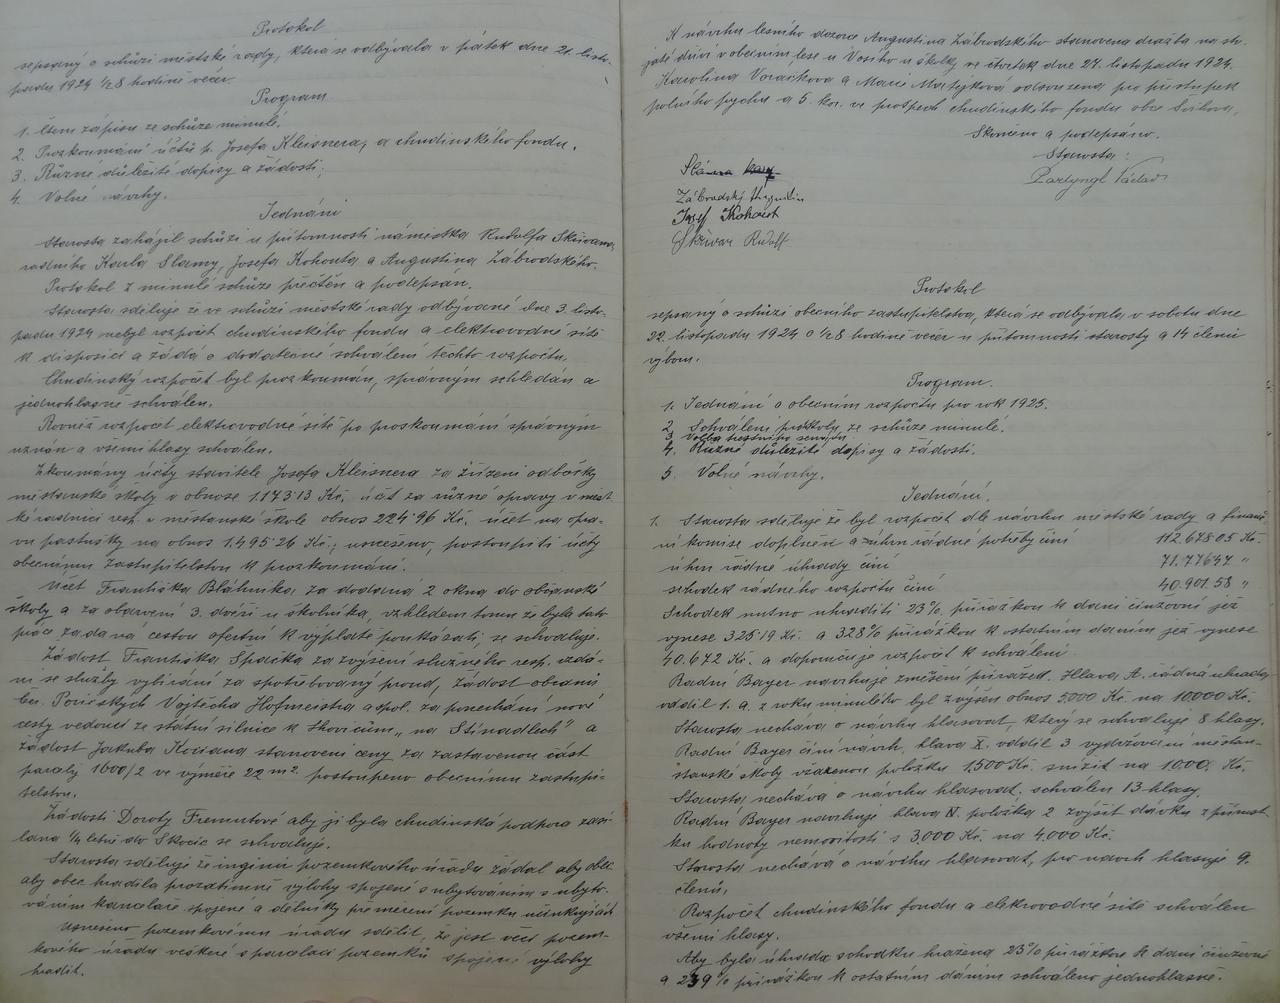 Protokol
sepsaný o schůzi městské rady, která se odbývala v pátek dne 21. listo-
padu 1924 ½8 hodině večer.
Program
1. Čtení zápisu ze schůze minulé.
2. Prozkoumání účtů p. Josefa Kleisnera, a chudinského fondu.
3. Různé důležité dopisy a žádosti;
4. Volné návrhy.
Jednání
Starosta zahájil schůzi u přítomnosti náměstka Rudolfa Skřivana
radního Karla Slamy, Josefa Kohouta a Augustina Zábrodského.
Protokol z minulé schůze přečten a podepsán.
Starosta sděluje že ve schůzi městské rady odbývané dne 3. listo-
padu 1924 nebyl rozpočet chudinského fondu a elektrovodné sítě
k disposici a žádá o dodatečné schválení těchto rozpočtu.
Chudinský rozpočet byl prozkoumán, správným schledán a
jednohlasně schválen.
Rovněž rozpočet elektrovodné sítě po proskoumání správným
uznán a všemi hlasy schválen.
Zkoumány účty stavitele Josefa Kleisnera za zřízení odbočky
městanské školy v obnose 1.143.13 Kč. účet za různé opravy v měst-
ké radnici resp. v městanské škole obnos 224.96 Kč. účet na opra-
vu pastušky na obnos 1.495.26 Kč.; usneseno, postoupiti účty
obecnímu zastupitelstvu k prozkoumání.
Účet Františka Bláhníka za dodaná 2 okna do občanské
školy a za obarvení 3. dveří u školníka, vzhledem tomu že byla tato
práce zadaná cestou ofertní k výplatě poukázati, se schvaluje.
Žádost Františka Spačka za zvýšení služného resp. vzdá-
ní se služby vybírání za spotřebovaný proud, žádost obcanů
Čes. Poříčských Vojtěcha Hofmeistra a spol. za ponechání nové
cesty vedoucí ze státní silnice k Skovicům „na Stínadlech" a
žádost Jakuba Kociana stanovení ceny za zastavenou část
parcely 1600/2 ve výměře 22 m². postoupeno obecnímu zastupi-
telstvu.
Žádosti Doroty Fremutové aby jí byla chudinská podpora zasí-
lana ¼ letně do Skočic se schvaluje.
Starosta sděluje že inginír pozemkového úřadu žádal aby obec
aby obec hradila prozatimně výlohy spojené s ubytováním s ubyto-
váním kanceláře spojené a dělníky při měření pozemku účinkujících
Usneseno pozemkovému úřadu sdělit, že jest věcí pozem-
kového úřadu veškeré s parcelací pozemků spojené výlohy
hradit.
K návrhu lesního dozorce Augustina Zábrodského stanovena dražba na sto-
jaté dříví v obecním lese u Vosího u školky ve čtvrtek dne 27. listopadu 1924.
Karolina Voračkova a Marie Matějková odsouzena pro přestupek
polního pychu a 5. kor. ve prospěch chudinského fondu obce
Skončeno a podepsáno.
Starosta:
Partyngl Václav
Sláma
Zábrodský Augustin
Josef Kohout
Skřivan Rudolf
Protokol
sepsaný o schůzi obecního zastupitelstva, která se odbývala v sobotu dne
22. listopadu 1924 o ½8 hodině večer u přítomnosti starosty a 14 členů
výboru.
Program.
1. Jednání o obecním rozpočtu pro rok 1925.
2. Schválení protokolu ze schůze minulé.
3. Volba trestního senátu
4. Různé důležité dopisy a žádosti.
5. Volné návrhy.
Jednání.
1. Starosta sděluje že byl rozpočet dle návrhu městské rady a finanč-
ní komise doplněn a úhrn řádné potřeby činí 112.678.05 Kč.
úhrn řádné úhrady činí 71.776.47 „
schodek řádného rozpočtu činí 40.901.58 „
Schodek nutno uhraditi 23%. přirážkou k dani činžovní jež
vynese 325.19 Kč. a 328% přirážkou k ostatním daním jež vynese
40.672 Kč. a doporučuje rozpočet k schválení.
Radní Bayer navrhuje změšení přirážek. Hlava A. řádná uhrada
oddíl 1. a. z roku minulého byl zvýšen obnos 5.000 Kč. na 10.000 Kč.
Starosta nechává o návrhu hlasovat, který se schvaluje 8 hlasy.
Radní Bayer činí návrh, hlava X. oddíl 3 vydržování měštan-
štanské školy vřazenou položku 1.500 Kč. snížit na 1000. Kč.
Starosta nechává o návrhu hlasovat. schválen 13 hlasy.
Radní Bayer navrhuje hlava IV. položka 2 zvýšit dávku z přírust-
ku hodnoty nemovitostí s 3.000 Kč. na 4.000 Kč.
Starosta nechává o návrhu hlasovat, pro navrh hlasuje 9.
členů.
Rozpočet chudinského fondu a elektrovodné sítě schválen
všemi hlasy.
Aby byla úhrada schodku hražena 23% přirážkou k dani činžovní
a 239% přirážkou k ostatním dáním schváleno jednohlasně.